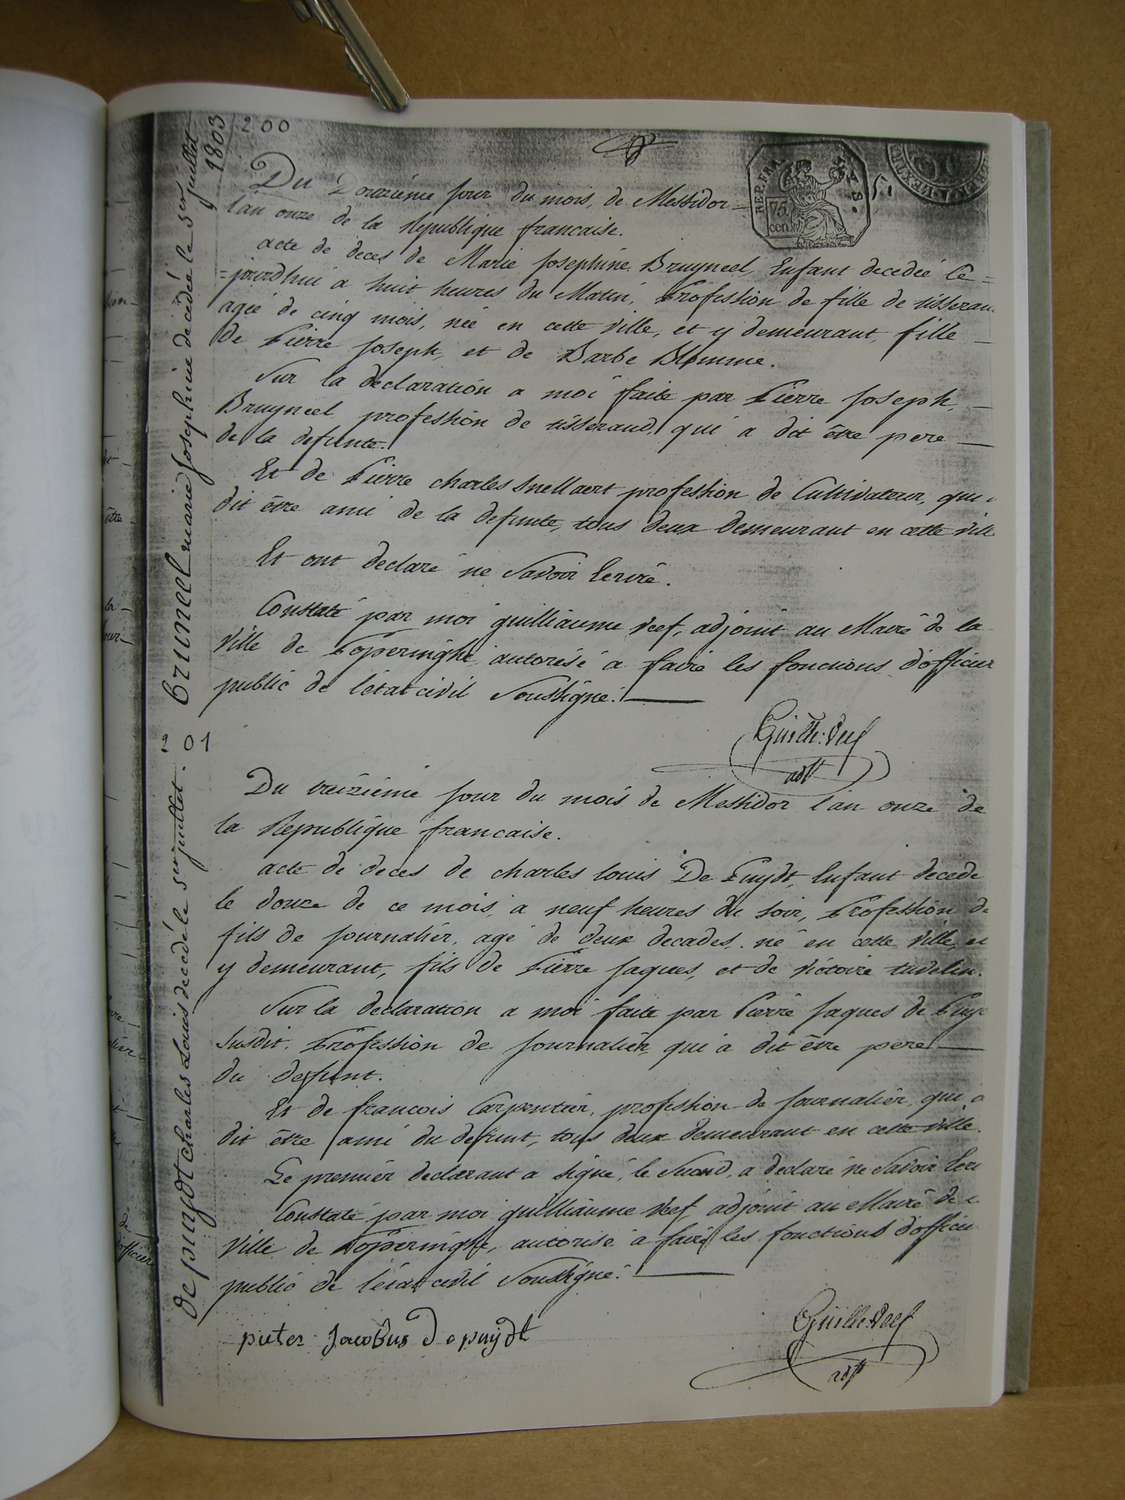 200
1803
REP. FRA
75
cen
Du Douzieme jour du mois, de Messidor
l'an onze de la Republique francaise.
acte de deces de Marie Josephine Bruyneel, Enfant decedeé Ce=
=jourdhui a huit heures du Matin, Profession de fille de tisseran
ageé de cinq mois, neé en cette ville, et y demeurant, fille
de Pierre Joseph, et de Barbe Blomme.
Sur la declaration a moi faite par Pierre Joseph,
Bruyneel profession de tisserand, qui a dit être pere
de la defunte.
Et de Pierre charles Snellaert profession de Cultivateur, qui a
dit être ami de la defunte, tous deux demeurant en cette vill
Et ont declaré ne Savoir Ecrire.
Constaté par moi guilliaume Veef, adjoint au Maire de la
Ville de Poperinghe, autorisé a faire les fonctions d'officier
public de letat civil Soussigné.
Guille: Veef
adjt
bruneel marie Josephine decedeé le 5er juillet
201
Du treizieme jour du mois de Messidor l'an onze de
la Republique francaise.
acte de deces de charles louis De Puydt, Enfant decede
le douze de ce mois, a neuf heures du soir, Profession de
fils de journalier, agé de deux decades, né en cette ville, et
y demeurant, fils de Pierre Jaques, et de Victoire tudelin.
Sur la declaration a moi faite par Pierre Jaques de Puy
Susdit. Profession de journalier, qui a dit être pere
du defunt.
Et de francois Carpentier, profession de journalier, qui a
dit être ami du defunt, tous deux demeurant en cette ville.
Le premier declarant a signé, le Second, a declaré ne Savoir Ecri
Constaté par moi guilliaume Veef, adjoint au Maire de l
Ville de Poperinghe, autorisé a faire les fonctions d'officie
public de l'état civil Soussigné.
pieter Jacobus Depuydt
Guille: Veef
adjt
de puydt charles Louis decedé le 5er juillet.